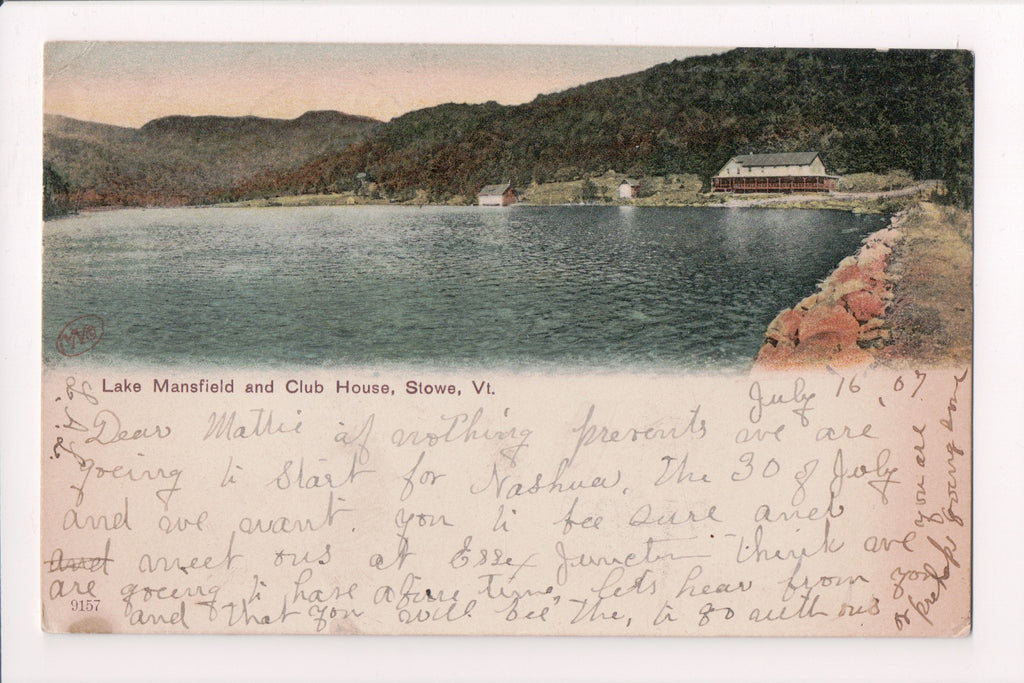 Lake Mansfield and Club House, Stowe, Vt.
July 16, 07
Dear Mattie if nothing prevents we are
goeing to start for Nashua, the 30 of July
and we want you to bee sure and
and meet ous at Essex Junction think we
are goeing to have a fine time, lets hear from you
and that you will bee the, to go with ous
or prehap you are going some
9157